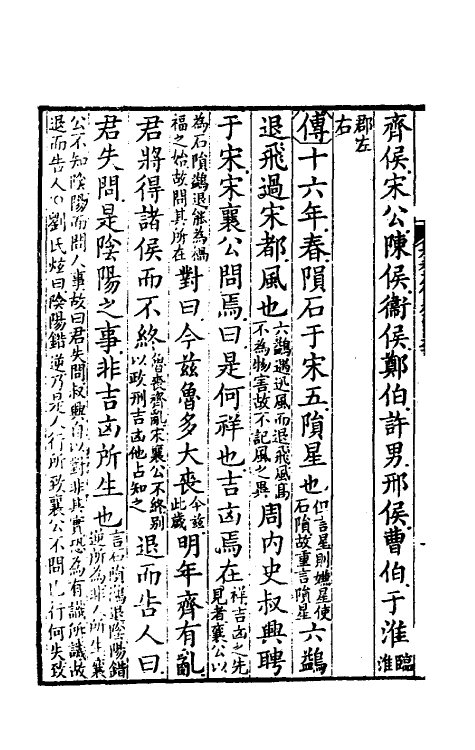 齊侯宋公陳侯衞侯鄭伯許男邢侯曹伯于淮臨淮
郡左
右
傳十六年春隕石于宋五隕星也但言星則嫌星使石隕故重言隕星六鷁
退飛過宋都風也六鷁遇迅風而退飛風高不為物害故不記風之異周内史叔興聘
于宋宋襄公問焉曰是何祥也吉凶焉在祥吉凶之先見者襄公以
為石隕鷁退能為禍福之始故問其所在對曰今兹魯多大喪今兹此歲明年齊有亂
君將得諸侯而不終魯喪齊亂宋襄公不終别以政刑吉凶他占知之退而告人曰
君失問是陰陽之事非吉凶所生也言石隕鷁退陰陽錯逆所為非人所生襄
公不知陰陽而問人事故曰君失問叔興自以對非其實恐為有識所譏故
退而告人 劉氏炫曰陰陽錯逆乃是人行所致襄公不問己行何失致